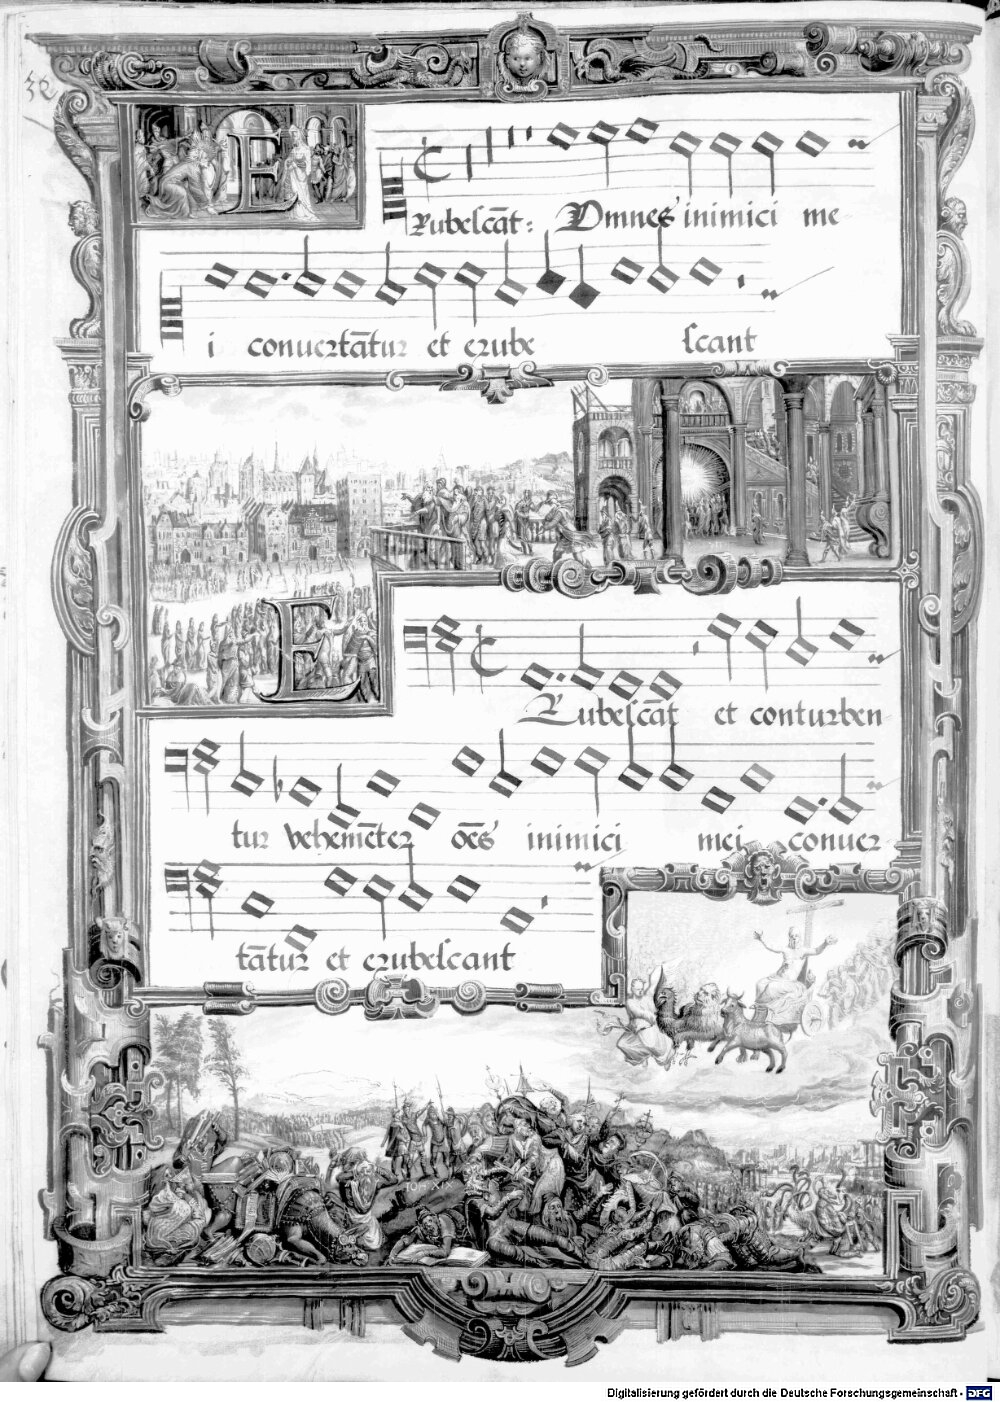 52
Erubescāt: Omnes inimici me-
i conuertātur et erube scant
Erubescāt et conturben-
tur vehemēter oēs inimici mei conuer
tātur et erubescant
Digitalisierung gefördert durch die Deutsche Forschungsgemeinschaft - DFG